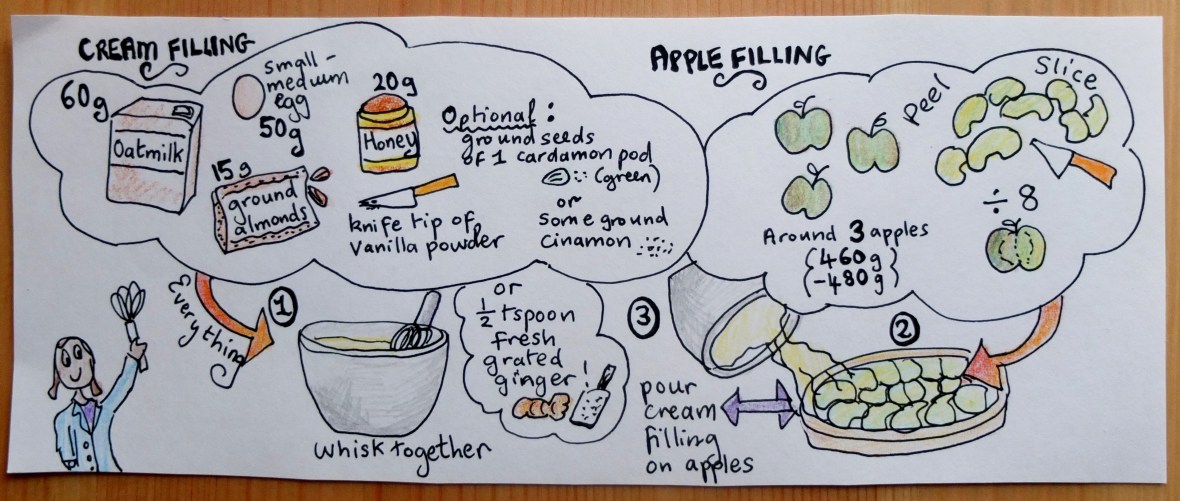 CREAM FILLING
60g
Oatmilk
small-
medium
egg
50g
15g
ground
almonds
20g
Honey
knife tip of
Vanilla powder
Optional:
ground seeds
of 1 cardamon pod
(green)
or
Some ground
Cinamon
Everything
1
whisk together
or
1/2 tspoon
fresh
grated
ginger!
APPLE FILLING
Peel
Slice
÷ 8
Around 3 apples
(460g
-480g)
2
3
pour
cream
filling
on apples